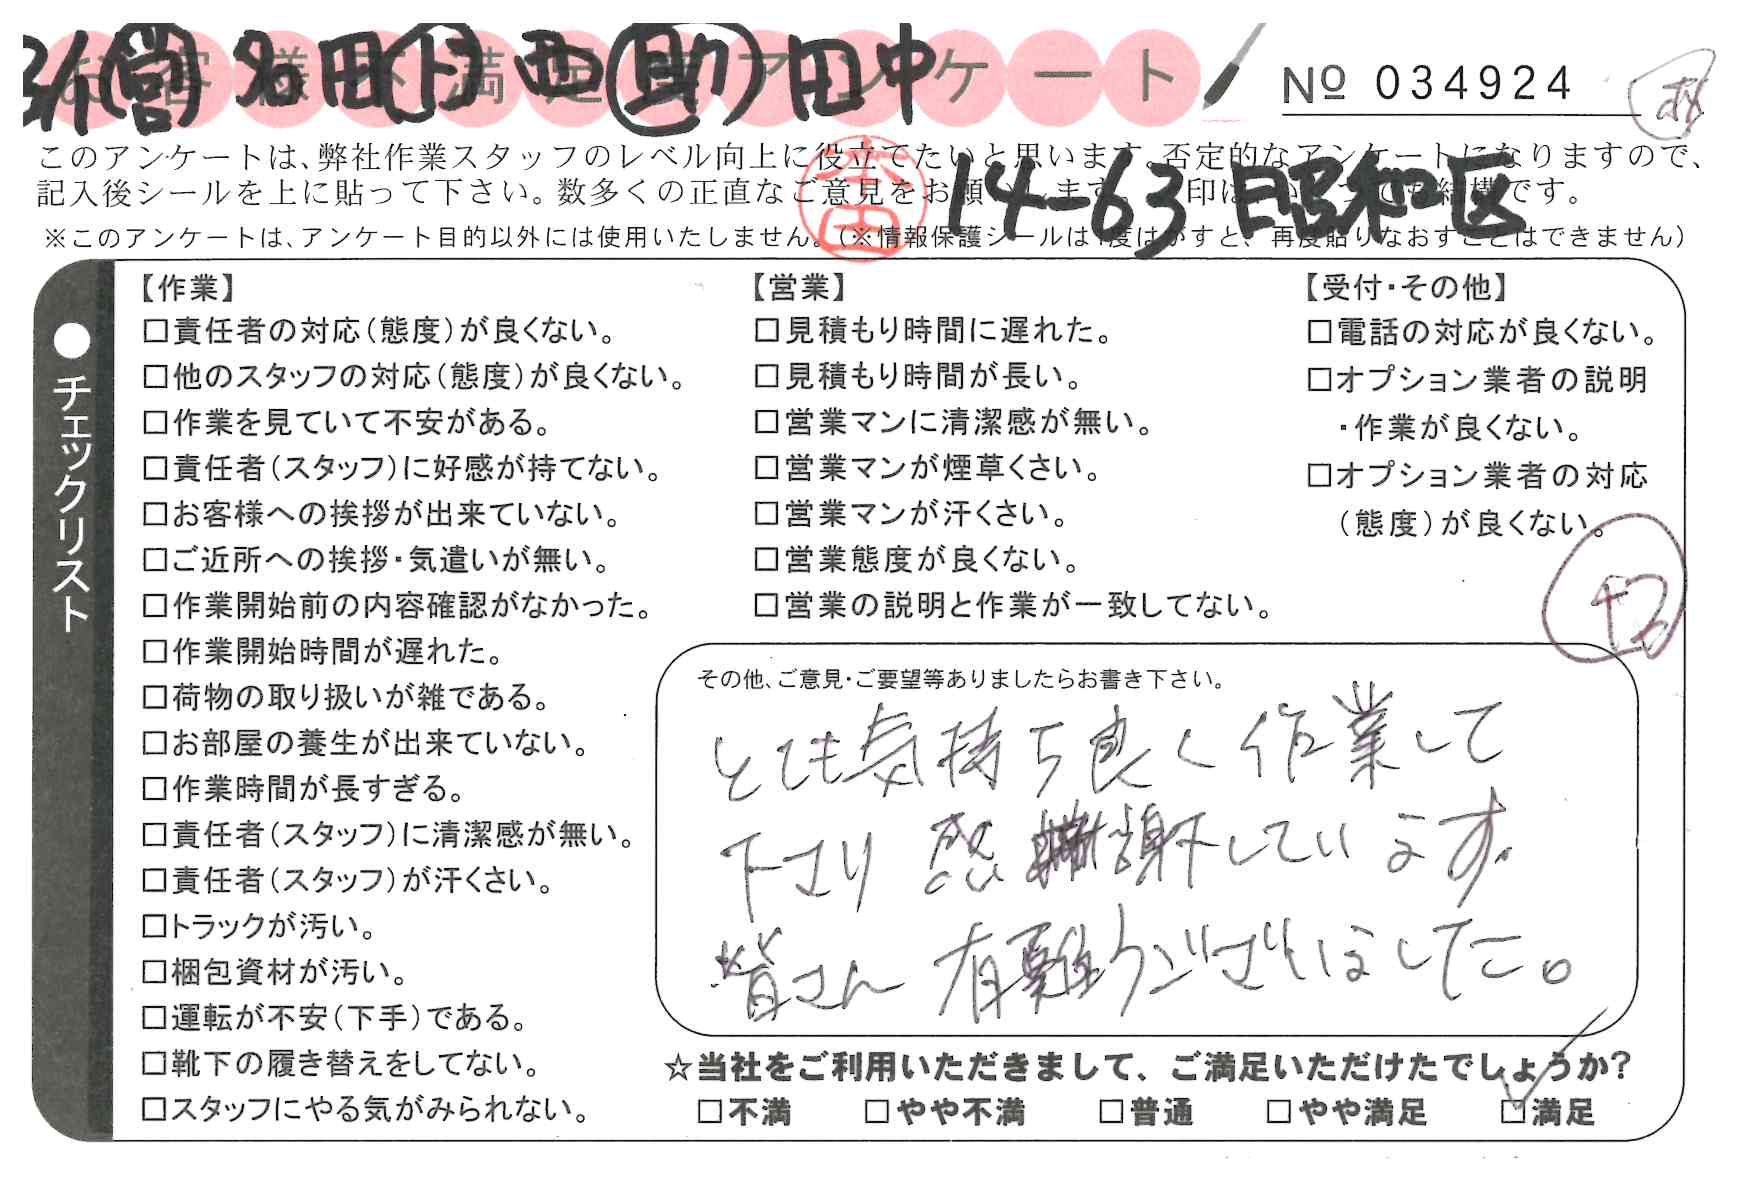 3/1 営 名田 ド 西 助 田中
お客様不満足度アンケート
№ 034924
このアンケートは、弊社作業スタッフのレベル向上に役立てたいと思います。否定的なアンケートになりますので、
記入後シールを上に貼って下さい。数多くの正直なご意見をお願いします。 印は
結構です。
14-63 昭和区
※このアンケートは、アンケート目的以外には使用いたしません。(※情報保護シールは1度はがすと、再度貼りなおすことはできません)
●チェックリスト
【作業】
□責任者の対応(態度)が良くない。
□他のスタッフの対応(態度)が良くない。
□作業を見ていて不安がある。
□責任者(スタッフ)に好感が持てない。
□お客様への挨拶が出来ていない。
□ご近所への挨拶・気遣いが無い。
□作業開始前の内容確認がなかった。
□作業開始時間が遅れた。
□荷物の取り扱いが雑である。
□お部屋の養生が出来ていない。
□作業時間が長すぎる。
□責任者(スタッフ)に清潔感が無い。
□責任者(スタッフ)が汗くさい。
□トラックが汚い。
□梱包資材が汚い。
□運転が不安(下手)である。
□靴下の履き替えをしてない。
□スタッフにやる気がみられない。
【営業】
□見積もり時間に遅れた。
□見積もり時間が長い。
□営業マンに清潔感が無い。
□営業マンが煙草くさい。
□営業マンが汗くさい。
□営業態度が良くない。
□営業の説明と作業が一致してない。
【受付・その他】
□電話の対応が良くない。
□オプション業者の説明
・作業が良くない。
□オプション業者の対応
(態度)が良くない。
その他、ご意見・ご要望等ありましたらお書き下さい。
とても気持ち良く作業して
下さり 感謝しています。
皆さん 有難うございました。
☆当社をご利用いただきまして、ご満足いただけたでしょうか?
□不満 □やや不満 □普通 □やや満足 ☑満足